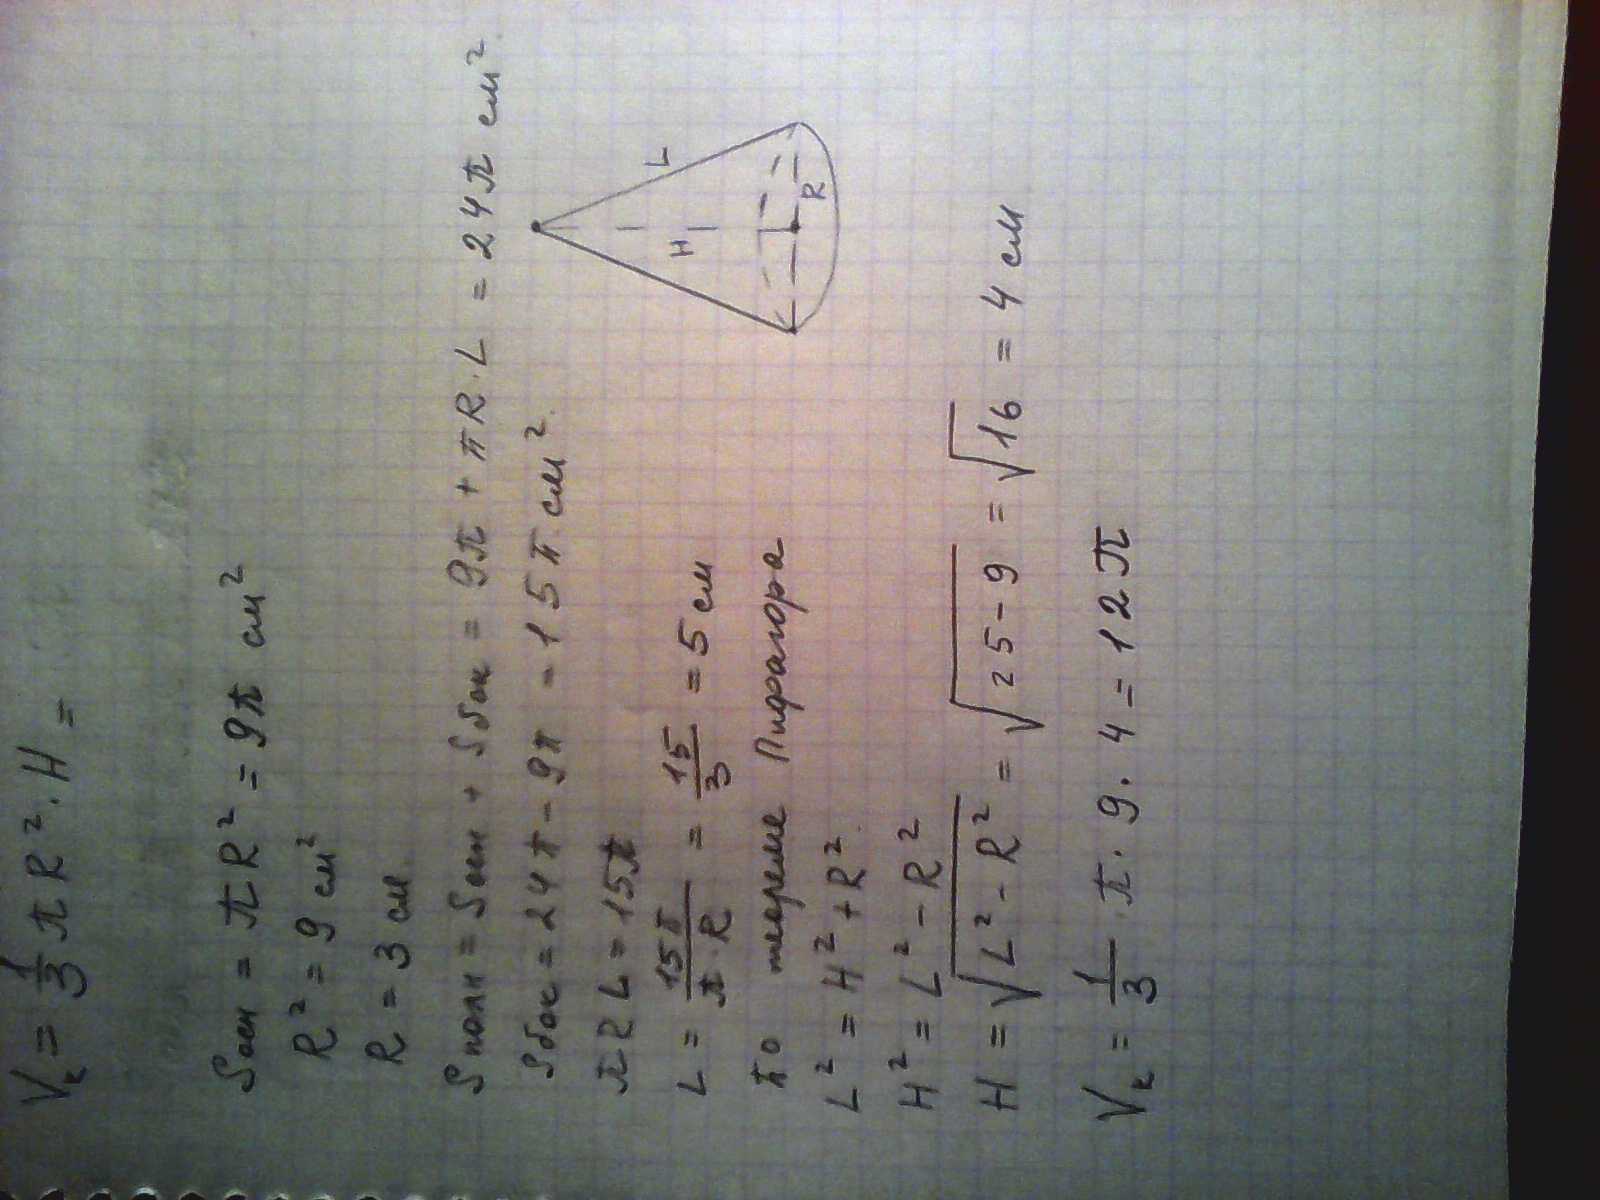 Vк = 1/3 πR² · H =
Sосн = πR² = 9π см²
R² = 9 см²
R = 3 см
Sполн = Sосн + Sбок = 9π + πR·L = 24π см²
Sбок = 24π - 9π = 15π см²
πRL = 15π
L = 15π/π·R = 15/3 = 5 см
По теореме Пифагора
L² = H² + R²
H² = L² - R²
H = √L² - R² = √25-9 = √16 = 4 см
Vк = 1/3 · π · 9 · 4 = 12π
L
H
R